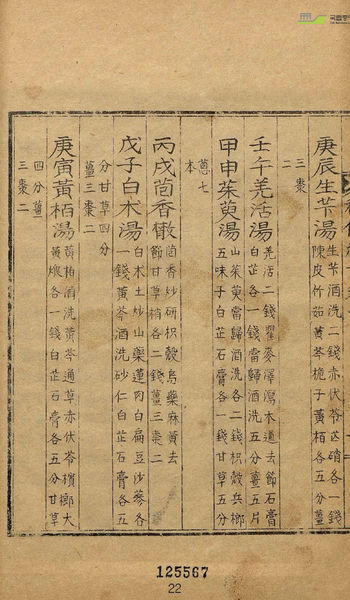 庚辰生芐湯 生芐酒洗二錢赤伏令芒硝各一錢
陳皮竹茹黃芩梔子黃栢各五分薑
三棗
二
壬午羌活湯 羌活二錢瞿麥澤瀉木通去節石膏
白芷各一錢當歸酒洗五分薑五片
甲申茱萸湯 山茱萸當歸酒洗各二錢枳殼兵榔
五味子白芷石膏各一錢甘草五分
蔥七
本
丙戌茴香散 茴香炒研枳殼烏藥麻黃去
節甘草梢各二錢薑三棗二
戊子白朮湯 白朮土炒山藥蓮肉白扁豆沙參各
一錢黃芩酒洗砂仁白芷石膏各五
分甘草四分
薑三棗二
庚寅黃栢湯 黃栢酒洗黃芩通草赤伏苓檳榔大
黃煨各一錢白芷石膏各五分甘草
四分薑
三棗二
125567
22